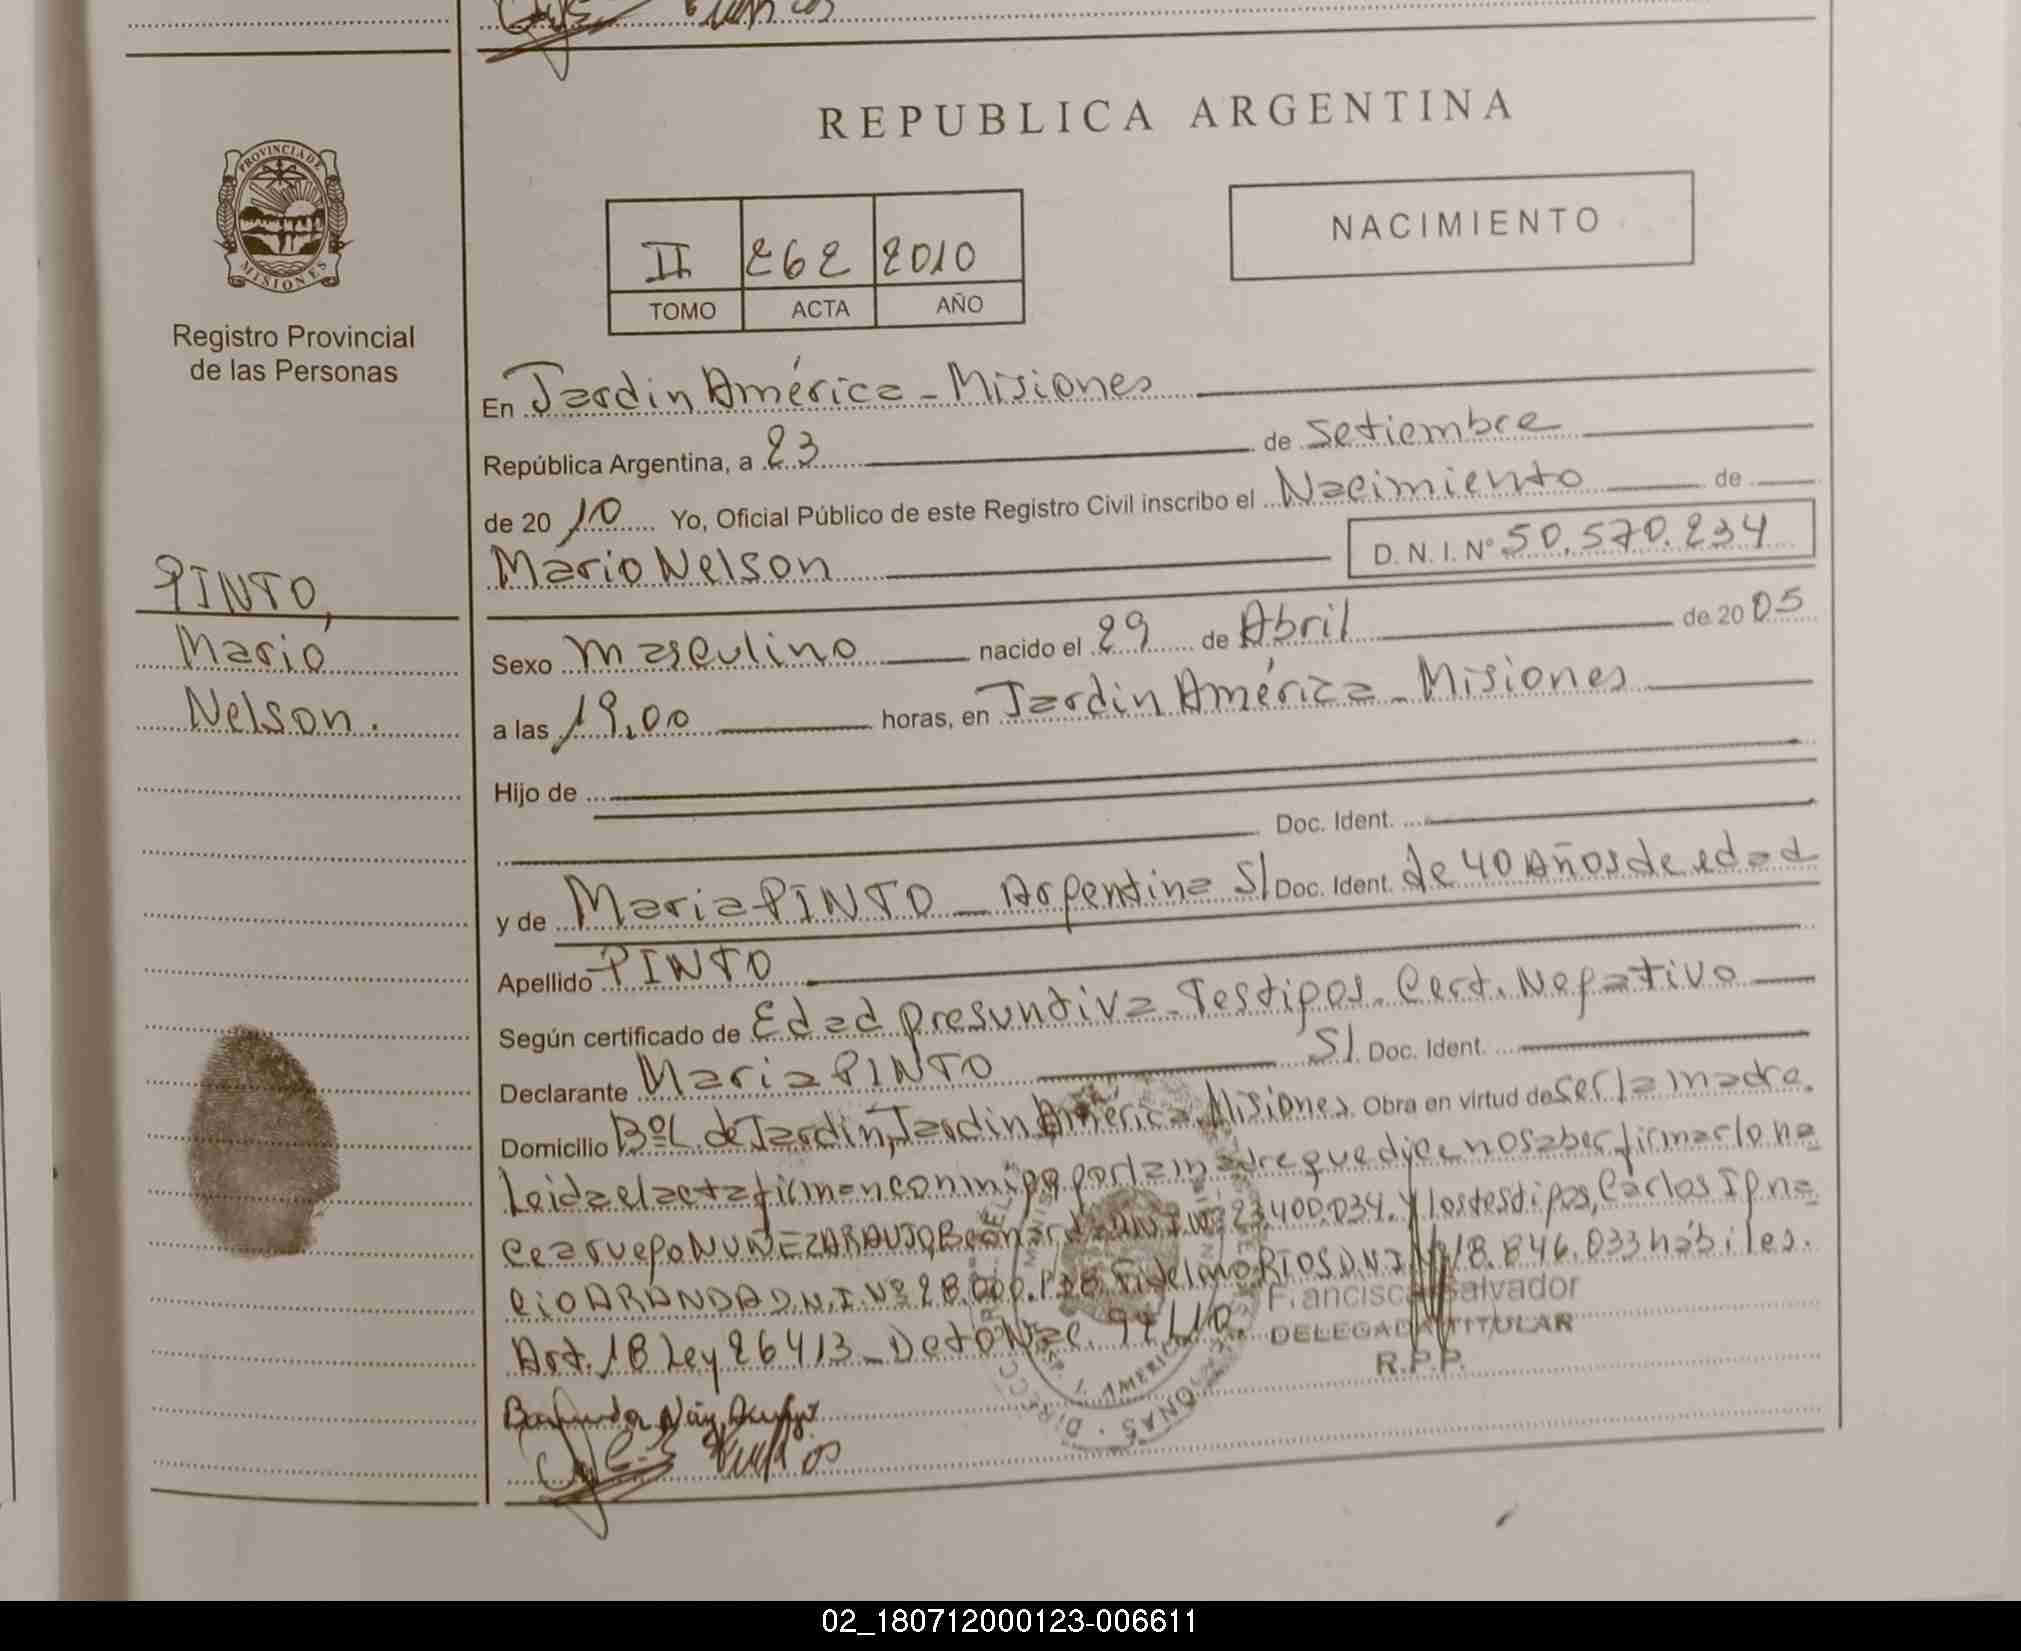 REPUBLICA ARGENTINA
PROVINCIA DE MISIONES
Registro Provincial
de las Personas
II 262 2010
TOMO ACTA AÑO
NACIMIENTO
En Jardin América - Misiones
República Argentina, a 23 de Setiembre
de 20 10 Yo, Oficial Público de este Registro Civil inscribo el Nacimiento de
Mario Nelson D.N.I. Nº 50.570.234
PINTO,
Mario
Nelson.
Sexo masculino nacido el 29 de Abril de 20 05
a las 19,00 horas, en Jardin América - Misiones
Hijo de
Doc. Ident.
y de Maria PINTO - Argentina S/ Doc. Ident. de 40 Años de edad
Apellido PINTO
Según certificado de Edad presuntiva - Testigos. Cert. Negativo
Declarante Maria PINTO S/. Doc. Ident.
Domicilio Bº L. de Jardin, Jardin América, Misiones. Obra en virtud de ser la madre.
Leida el acta firman conmigo por la madre que dice no saber firmar lo ha
ce a ruego NUÑEZ ARAUJO D.N.I. Nº 23.400.034. y los testigos, Carlos Igna
cio ARANDA D.N.I. Nº 28. Fidelino RIOS D.N.I. Nº 18.846.033 hábiles.
Art. 18 Ley 26413 - Dcto Nac. 92/10
Francisca Salvador
DELEGADA TITULAR
R.P.P.
02_180712000123-006611